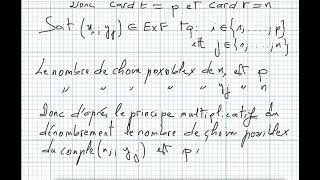 Donc Card E = p et Card F = n
Soit (xi, yj) ∈ E×F tq. i ∈ {1, ..., p}
et j ∈ {1, ..., n}
Le nombre de choix possibles de xi est p
" " " " " yj " n
Donc d'après le principe multiplicatif du
dénombrement le nombre de choix possibles
du couple (xi, yj) est p